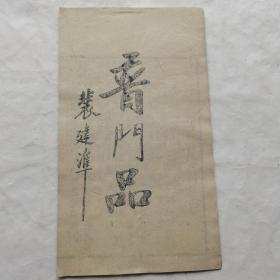 普門品
裴建準